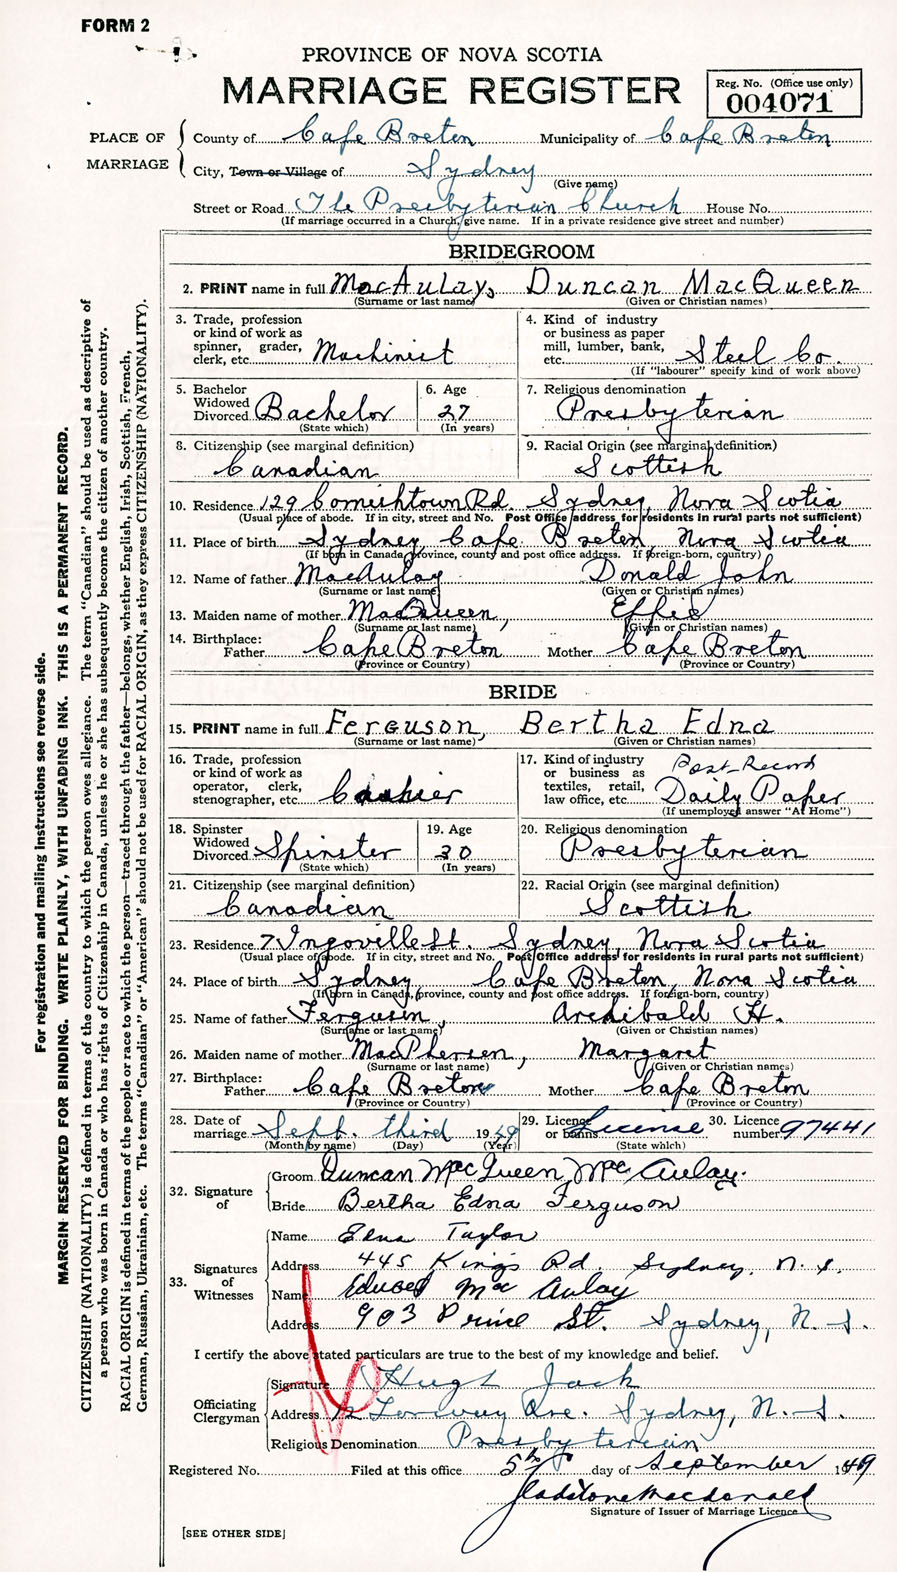 FORM 2
PROVINCE OF NOVA SCOTIA
MARRIAGE REGISTER
Reg. No. (Office use only)
004071
PLACE OF MARRIAGE
County of Cape Breton Municipality of Cape Breton
City, Town or Village of Sydney
(Give name)
Street or Road The Presbyterian Church House No.
(If marriage occurred in a Church, give name. If in a private residence give street and number)
BRIDEGROOM
2. PRINT name in full MacAulay, Duncan MacQueen
(Surname or last name) (Given or Christian names)
3. Trade, profession or kind of work as spinner, grader, clerk, etc. Machinist
4. Kind of industry or business as paper mill, lumber, bank, etc. Steel Co.
(If "labourer" specify kind of work above)
5. Bachelor Widowed Divorced Bachelor
(State which)
6. Age 27
(In years)
7. Religious denomination Presbyterian
8. Citizenship (see marginal definition) Canadian
9. Racial Origin (see marginal definition) Scottish
10. Residence 129 Cornishtown Rd. Sydney, Nova Scotia
(Usual place of abode. If in city, street and No. Post Office address for residents in rural parts not sufficient)
11. Place of birth Sydney Cape Breton, Nova Scotia
(If born in Canada, province, county and post office address. If foreign-born, country)
12. Name of father MacAulay Donald John
(Surname or last name) (Given or Christian names)
13. Maiden name of mother MacQueen, Effie
(Surname or last name) (Given or Christian names)
14. Birthplace: Father Cape Breton Mother Cape Breton
(Province or Country) (Province or Country)
BRIDE
15. PRINT name in full Ferguson, Bertha Edna
(Surname or last name) (Given or Christian names)
16. Trade, profession or kind of work as operator, clerk, stenographer, etc. Cashier
17. Kind of industry or business as textiles, retail, law office, etc. Post-Record Daily Paper
(If unemployed answer "At Home")
18. Spinster Widowed Divorced Spinster
(State which)
19. Age 30
(In years)
20. Religious denomination Presbyterian
21. Citizenship (see marginal definition) Canadian
22. Racial Origin (see marginal definition) Scottish
23. Residence 7 Ingoville St. Sydney, Nova Scotia
(Usual place of abode. If in city, street and No. Post Office address for residents in rural parts not sufficient)
24. Place of birth Sydney Cape Breton, Nova Scotia
(If born in Canada, province, county and post office address. If foreign-born, country)
25. Name of father Ferguson, Archibald H.
(Surname or last name) (Given or Christian names)
26. Maiden name of mother MacPherson, Margaret
(Surname or last name) (Given or Christian names)
27. Birthplace: Father Cape Breton Mother Cape Breton
(Province or Country) (Province or Country)
28. Date of marriage Sept. third 1949
(Month by name) (Day) (Year)
29. Licence or banns License
(State which)
30. Licence number 97441
32. Signature of
Groom Duncan MacQueen MacAulay.
Bride Bertha Edna Ferguson
33. Signatures of Witnesses
Name Edna Taylor
Address 445 Kings Rd. Sydney, N. S.
Name Edward Mac Aulay
Address 903 Prince St. Sydney, N. S.
I certify the above stated particulars are true to the best of my knowledge and belief.
Officiating Clergyman
Signature Hugh Jack
Address 12 Ave. Sydney, N. S.
Religious Denomination Presbyterian
Registered No. Filed at this office 5th day of September 1949
Gladstone Macdonald
Signature of Issuer of Marriage Licence
[SEE OTHER SIDE]
For registration and mailing instructions see reverse side.
MARGIN RESERVED FOR BINDING. WRITE PLAINLY, WITH UNFADING INK. THIS IS A PERMANENT RECORD.
CITIZENSHIP (NATIONALITY) is defined in terms of the country to which the person owes allegiance. The term "Canadian" should be used as descriptive of
a person who was born in Canada or who has rights of Citizenship in Canada, unless he or she has subsequently become the citizen of another country.
RACIAL ORIGIN is defined in terms of the people or race to which the person—traced through the father—belongs, whether English, Irish, Scottish, French,
German, Russian, Ukrainian, etc. The terms "Canadian" or "American" should not be used for RACIAL ORIGIN, as they express CITIZENSHIP (NATIONALITY).